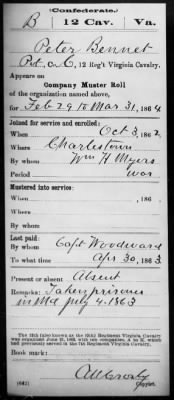 (Confederate.)
B 12 Cav. Va.
Peter Bennet
Pvt, Co. C, 12 Reg't Virginia Cavalry.
Appears on
Company Muster Roll
of the organization named above,
for Feb 29 to Mar 31, 1864
Joined for service and enrolled:
When Oct 3, 1862
Where Charlestown
By whom Wm H Myers
Period war
Mustered into service:
When , 186 .
Where
By whom
Last paid:
By whom Capt Woodward
To what time Apr 30, 1863
Present or absent Absent
Remarks: Taken prisoner
in Md July 4. 1863
The 12th (also known as the 10th) Regiment Virginia Cavalry
was organized June 21, 1862, with ten companies, A to K, which
had previously served in the 7th Regiment Virginia Cavalry.
Book mark:
(642) Copyist.